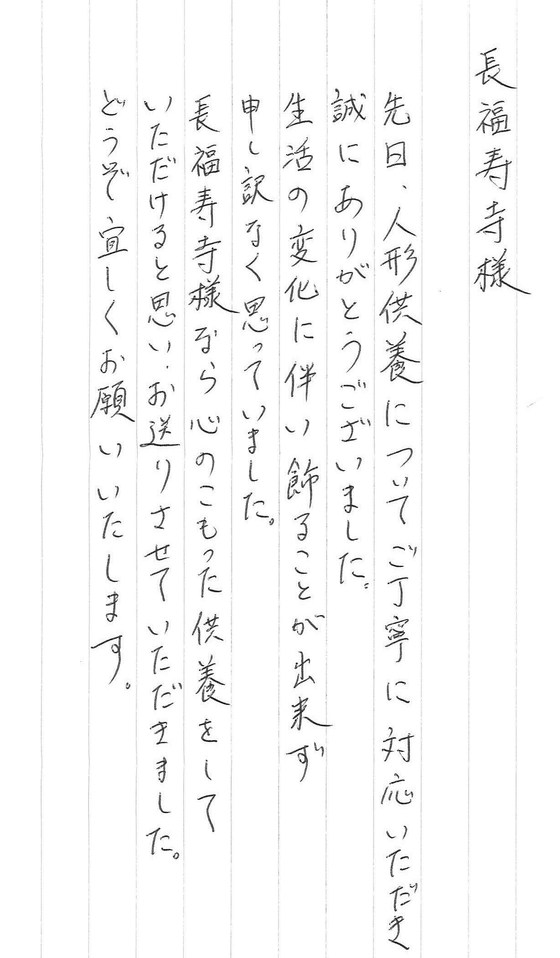 長福寿寺様
先日、人形供養についてご丁寧に対応いただき
誠にありがとうございました。
生活の変化に伴い飾ることが出来ず
申し訳なく思っていました。
長福寿寺様なら心のこもった供養をして
いただけると思い、お送りさせていただきました。
どうぞ宜しくお願いいたします。